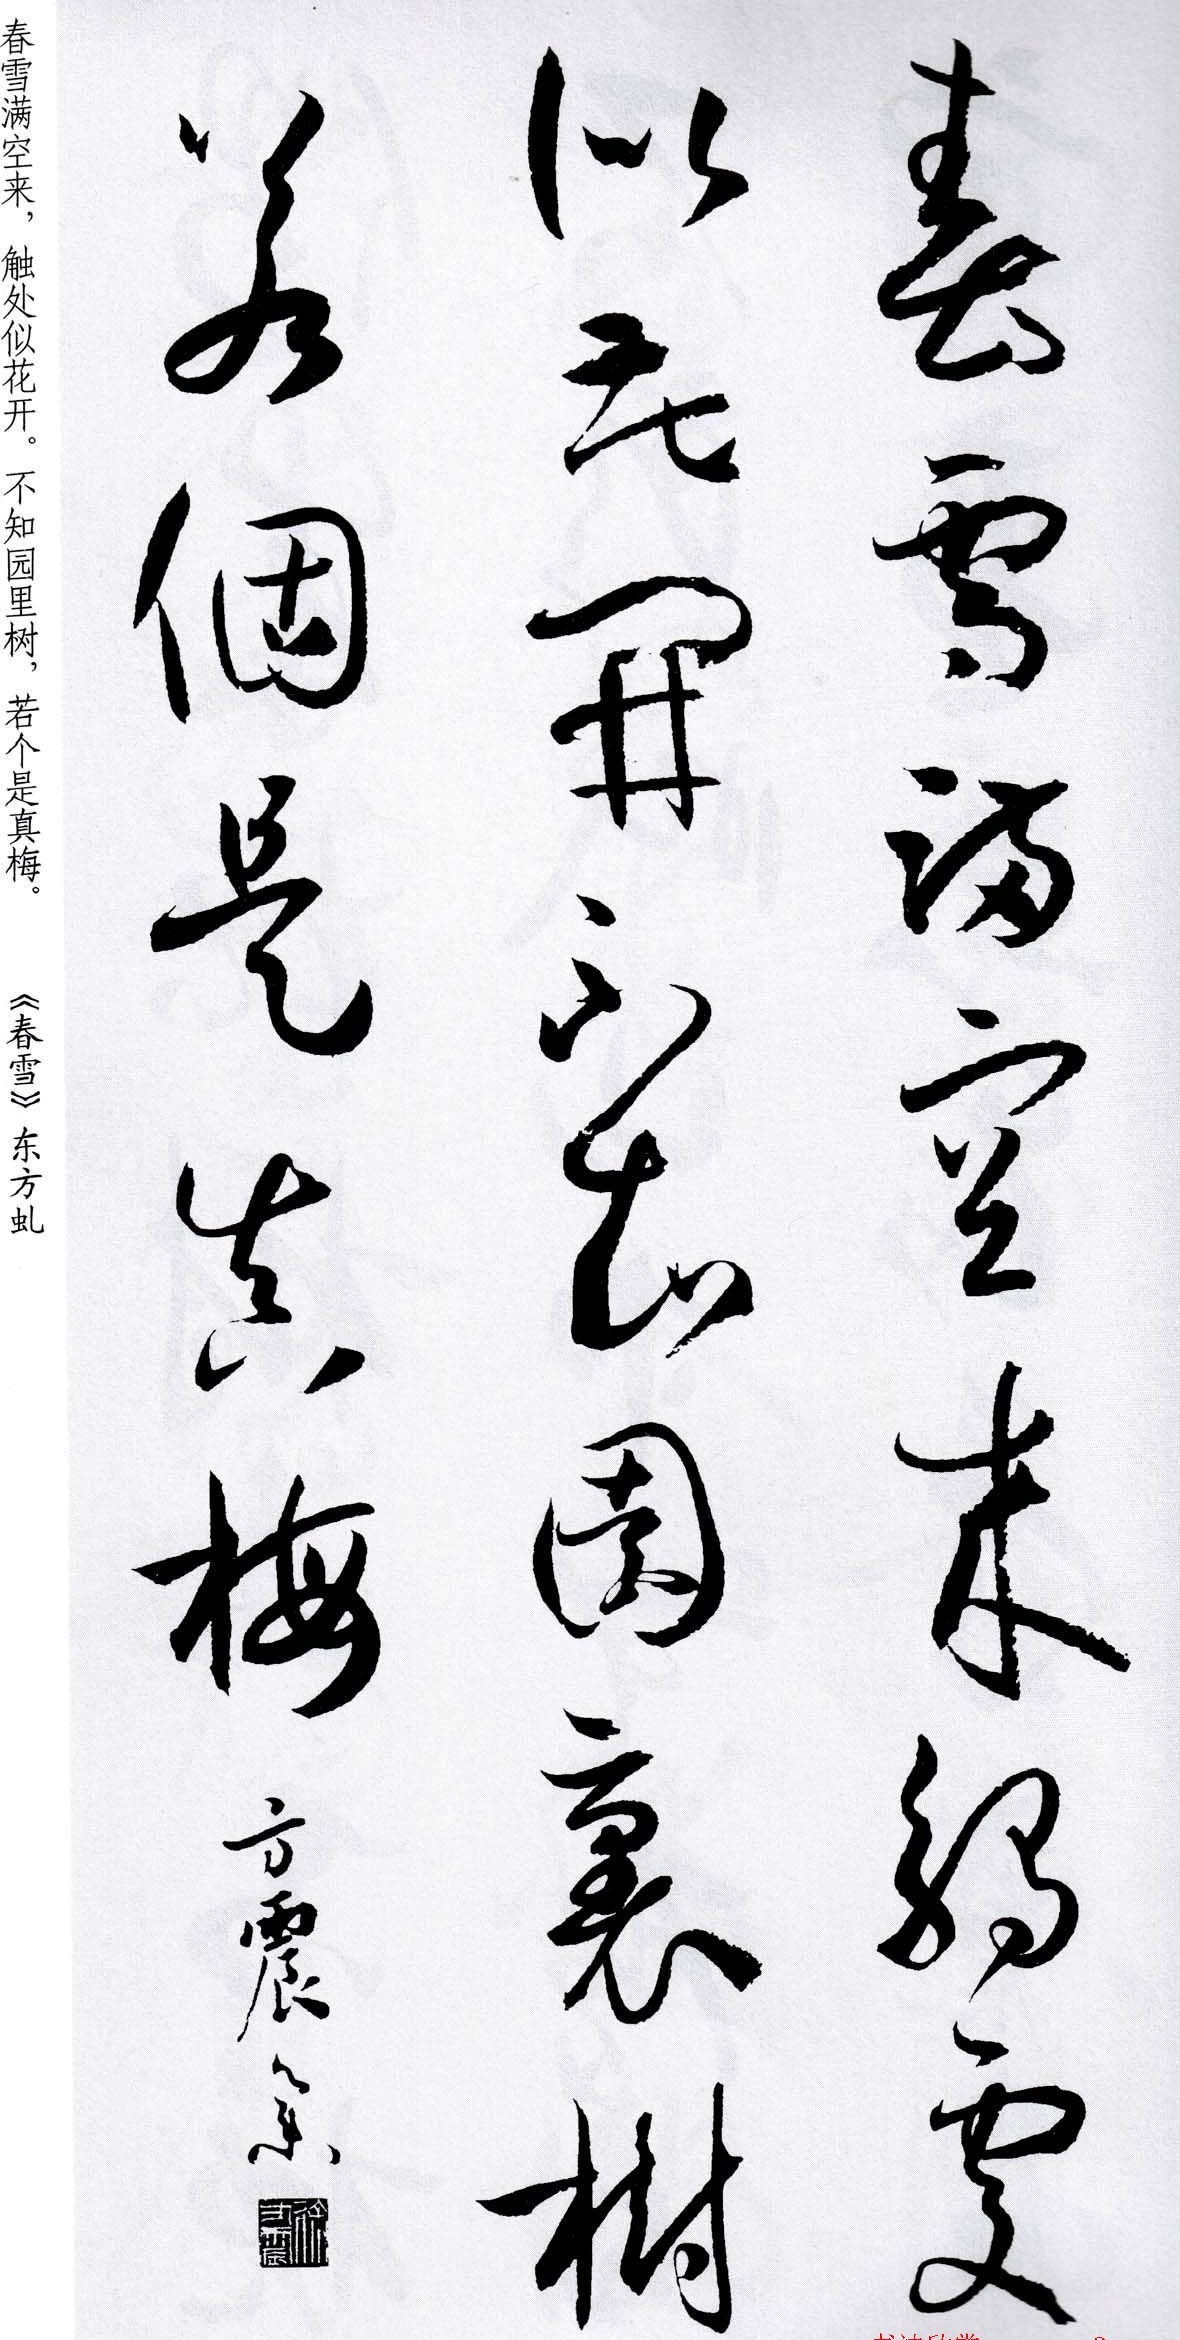 春雪满空来触處
似花開不知園裏樹
若個是真梅
方震
春雪满空来，触处似花开。不知园里树，若个是真梅。
《春雪》东方虬